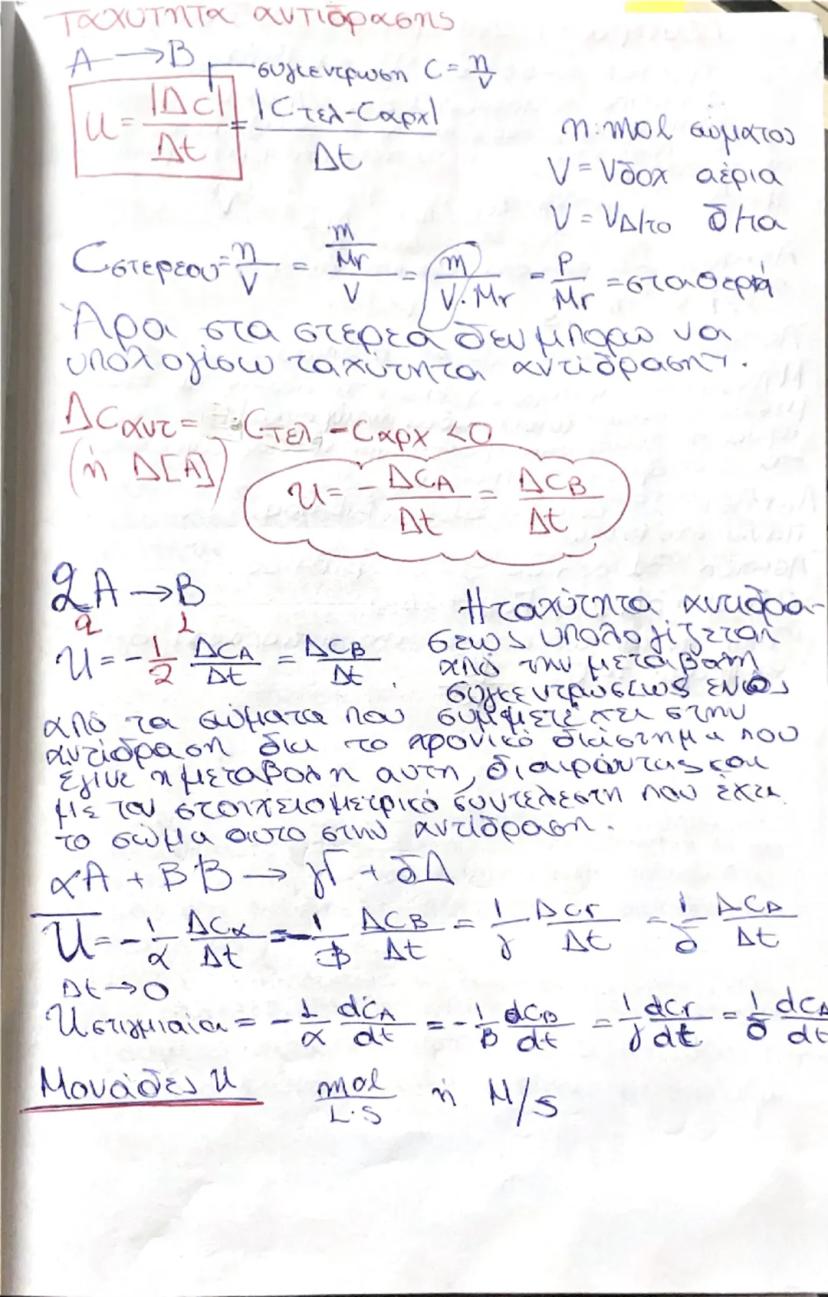 Ταχυτητα αντιδρασης
A → B
συγκεντρωση C = n/V
u = |ΔC|/Δt = |Cτελ-Cαρχ|/Δt
n: mol σώματος
V = Vδοχ αέρια
V = VΔ/το δ/τα
Cστερεου = n/V = (m/Mr)/V = m/(V·Mr) = ρ/Mr = σταθερή
Άρα στα στερεά δεν μπορώ να
υπολογίσω ταχύτητα αντίδρασης.
ΔCαντ = Cτελ - Cαρχ <0
(ή Δ[A])
u = - ΔCA/Δt = ΔCB/Δt
2A → B
2 1
u = - 1/2 ΔCA/Δt = ΔCB/Δt
Η ταχύτητα αντιδρα-
σεως υπολογίζεται
από την μεταβολή
συγκεντρώσεως ενός
από τα σώματα που συμμετέχει στην
αντίδραση δια το χρονικό διάστημα που
έγινε η μεταβολή αυτή, διαιρώντας και
με τον στοιχειομετρικό συντελεστή που έχει
το σώμα αυτό στην αντίδραση.
αA + βB → γΓ + δΔ
u = - 1/α ΔCα/Δt = - 1/β ΔCB/Δt = 1/γ ΔCΓ/Δt = 1/δ ΔCΔ/Δt
Δt → 0
uστιγμιαία = - 1/α dCA/dt = - 1/β dCB/dt = 1/γ dCΓ/dt = 1/δ dCΔ/dt
Μονάδες u mol/L·s ή M/s